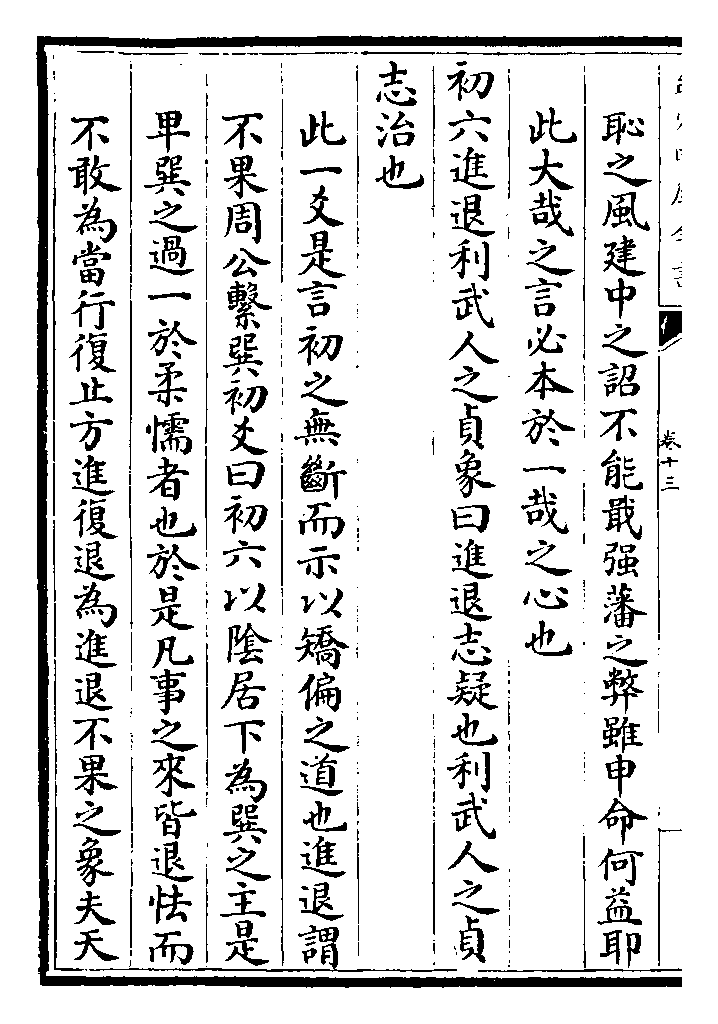 恥之風建中之詔不能戢强藩之弊雖申命何益耶
此大哉之言必本於一哉之心也
初六進退利武人之貞象曰進退志疑也利武人之貞
志治也
此一爻是言初之無斷而示以矯偏之道也進退謂
不果周公繫巽初爻曰初六以陰居下為巽之主是
卑巽之過一於柔懦者也於是凡事之來皆退怯而
不敢為當行復止方進復退為進退不果之象夫天
卷十三